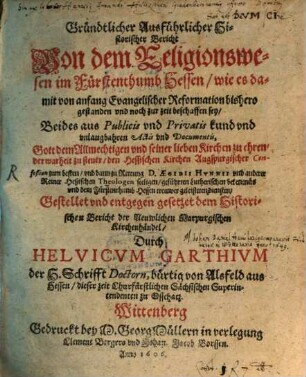 Gründtlicher Außführlicher Hi-
storischer Bericht
Von dem Religionswe-
sen im Fürstenthumb Hessen / wie es da-
mit von anfang Evangelischer Reformation bishero
gestanden und noch zur zeit beschaffen sey /
Beides aus Publicis vnd Privatis kund vnd
vnlaugbahren Actis vnd Documentis,
Gott dem Allmechtigen vnd seiner lieben Kirchen zu ehren /
der warheit zu steuer / den Hessischen Kirchen Augspurgischer Con-
fession zum besten / vnd dann zu Rettung D. Egidii Hunnii vnd anderer
Reiner Hessischen Theologen seligen / geführten Lutherischen bekentnis
Gestellet vnd entgegen gesetzt dem Histori-
schen Bericht der Neuwlichen Marpurgischen
Kirchenhändel /
Durch
HELVICUM GARTHIUM
der H. Schrifft Doctorn, bürtig von Alsfeld aus
Hessen / dieser zeit Churfürstlichen Sächsischen Superin-
tendenten zu Oschatz.
Wittenberg
Gedruckt bey M. Georg Müllern in verlegung
Clement Bergers vnd Johan. Jacob Porssen.
Anno 1606.